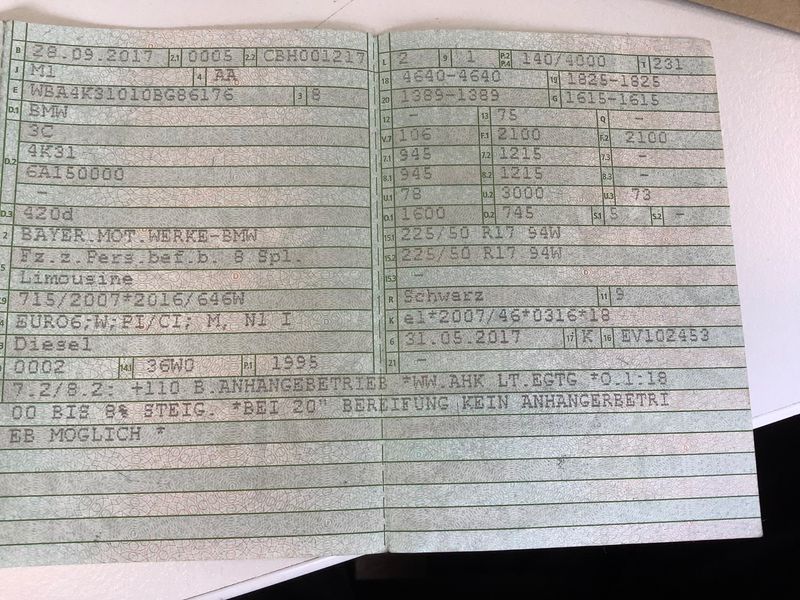 B 28.09.2017 2.1 0005 2.2 CBH001217
J M1 4 AA
E WBA4K31010BG86176 3 8
D.1 BMW
3C
D.2 4K31
6A150000
-
D.3 420d
2 BAYER.MOT.WERKE-BMW
5 Fz.z.Pers.bef.b. 8 Spl.
Limousine
V.9 715/2007*2016/646W
14 EURO6;W;PI/CI; M, N1 I
P.3 Diesel
10 0002 14.1 36W0 P.1 1995
L 2 9 1 P.2 P.4 140/4000 T 231
18 4640-4640 19 1825-1825
20 1389-1389 G 1615-1615
12 - 13 75 Q -
V.7 106 F.1 2100 F.2 2100
7.1 945 7.2 1215 7.3 -
8.1 945 8.2 1215 8.3 -
U.1 78 U.2 3000 U.3 73
O.1 1600 O.2 745 S.1 5 S.2 -
15.1 225/50 R17 94W
15.2 225/50 R17 94W
15.3 -
R Schwarz 11 9
K e1*2007/46*0316*18
6 31.05.2017 17 K 16 EV102453
21 -
7.2/8.2: +110 B.ANHÄNGEBETRIEB *WW.AHK LT.EGTG *O.1:18
00 BIS 8% STEIG. *BEI 20" BEREIFUNG KEIN ANHÄNGERBETRI
EB MÖGLICH *